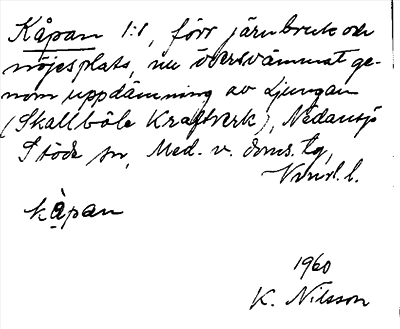 Kåpan 1:1, förr järnbruk och
nöjesplats, nu översvämmat ge-
nom uppdämning av Ljungan
(Skallböle Kraftverk), Nedansjö
Stöde sn, Med. v. doms. tg,
Vnrl. l.
kåpan
1960
K. Nilsson